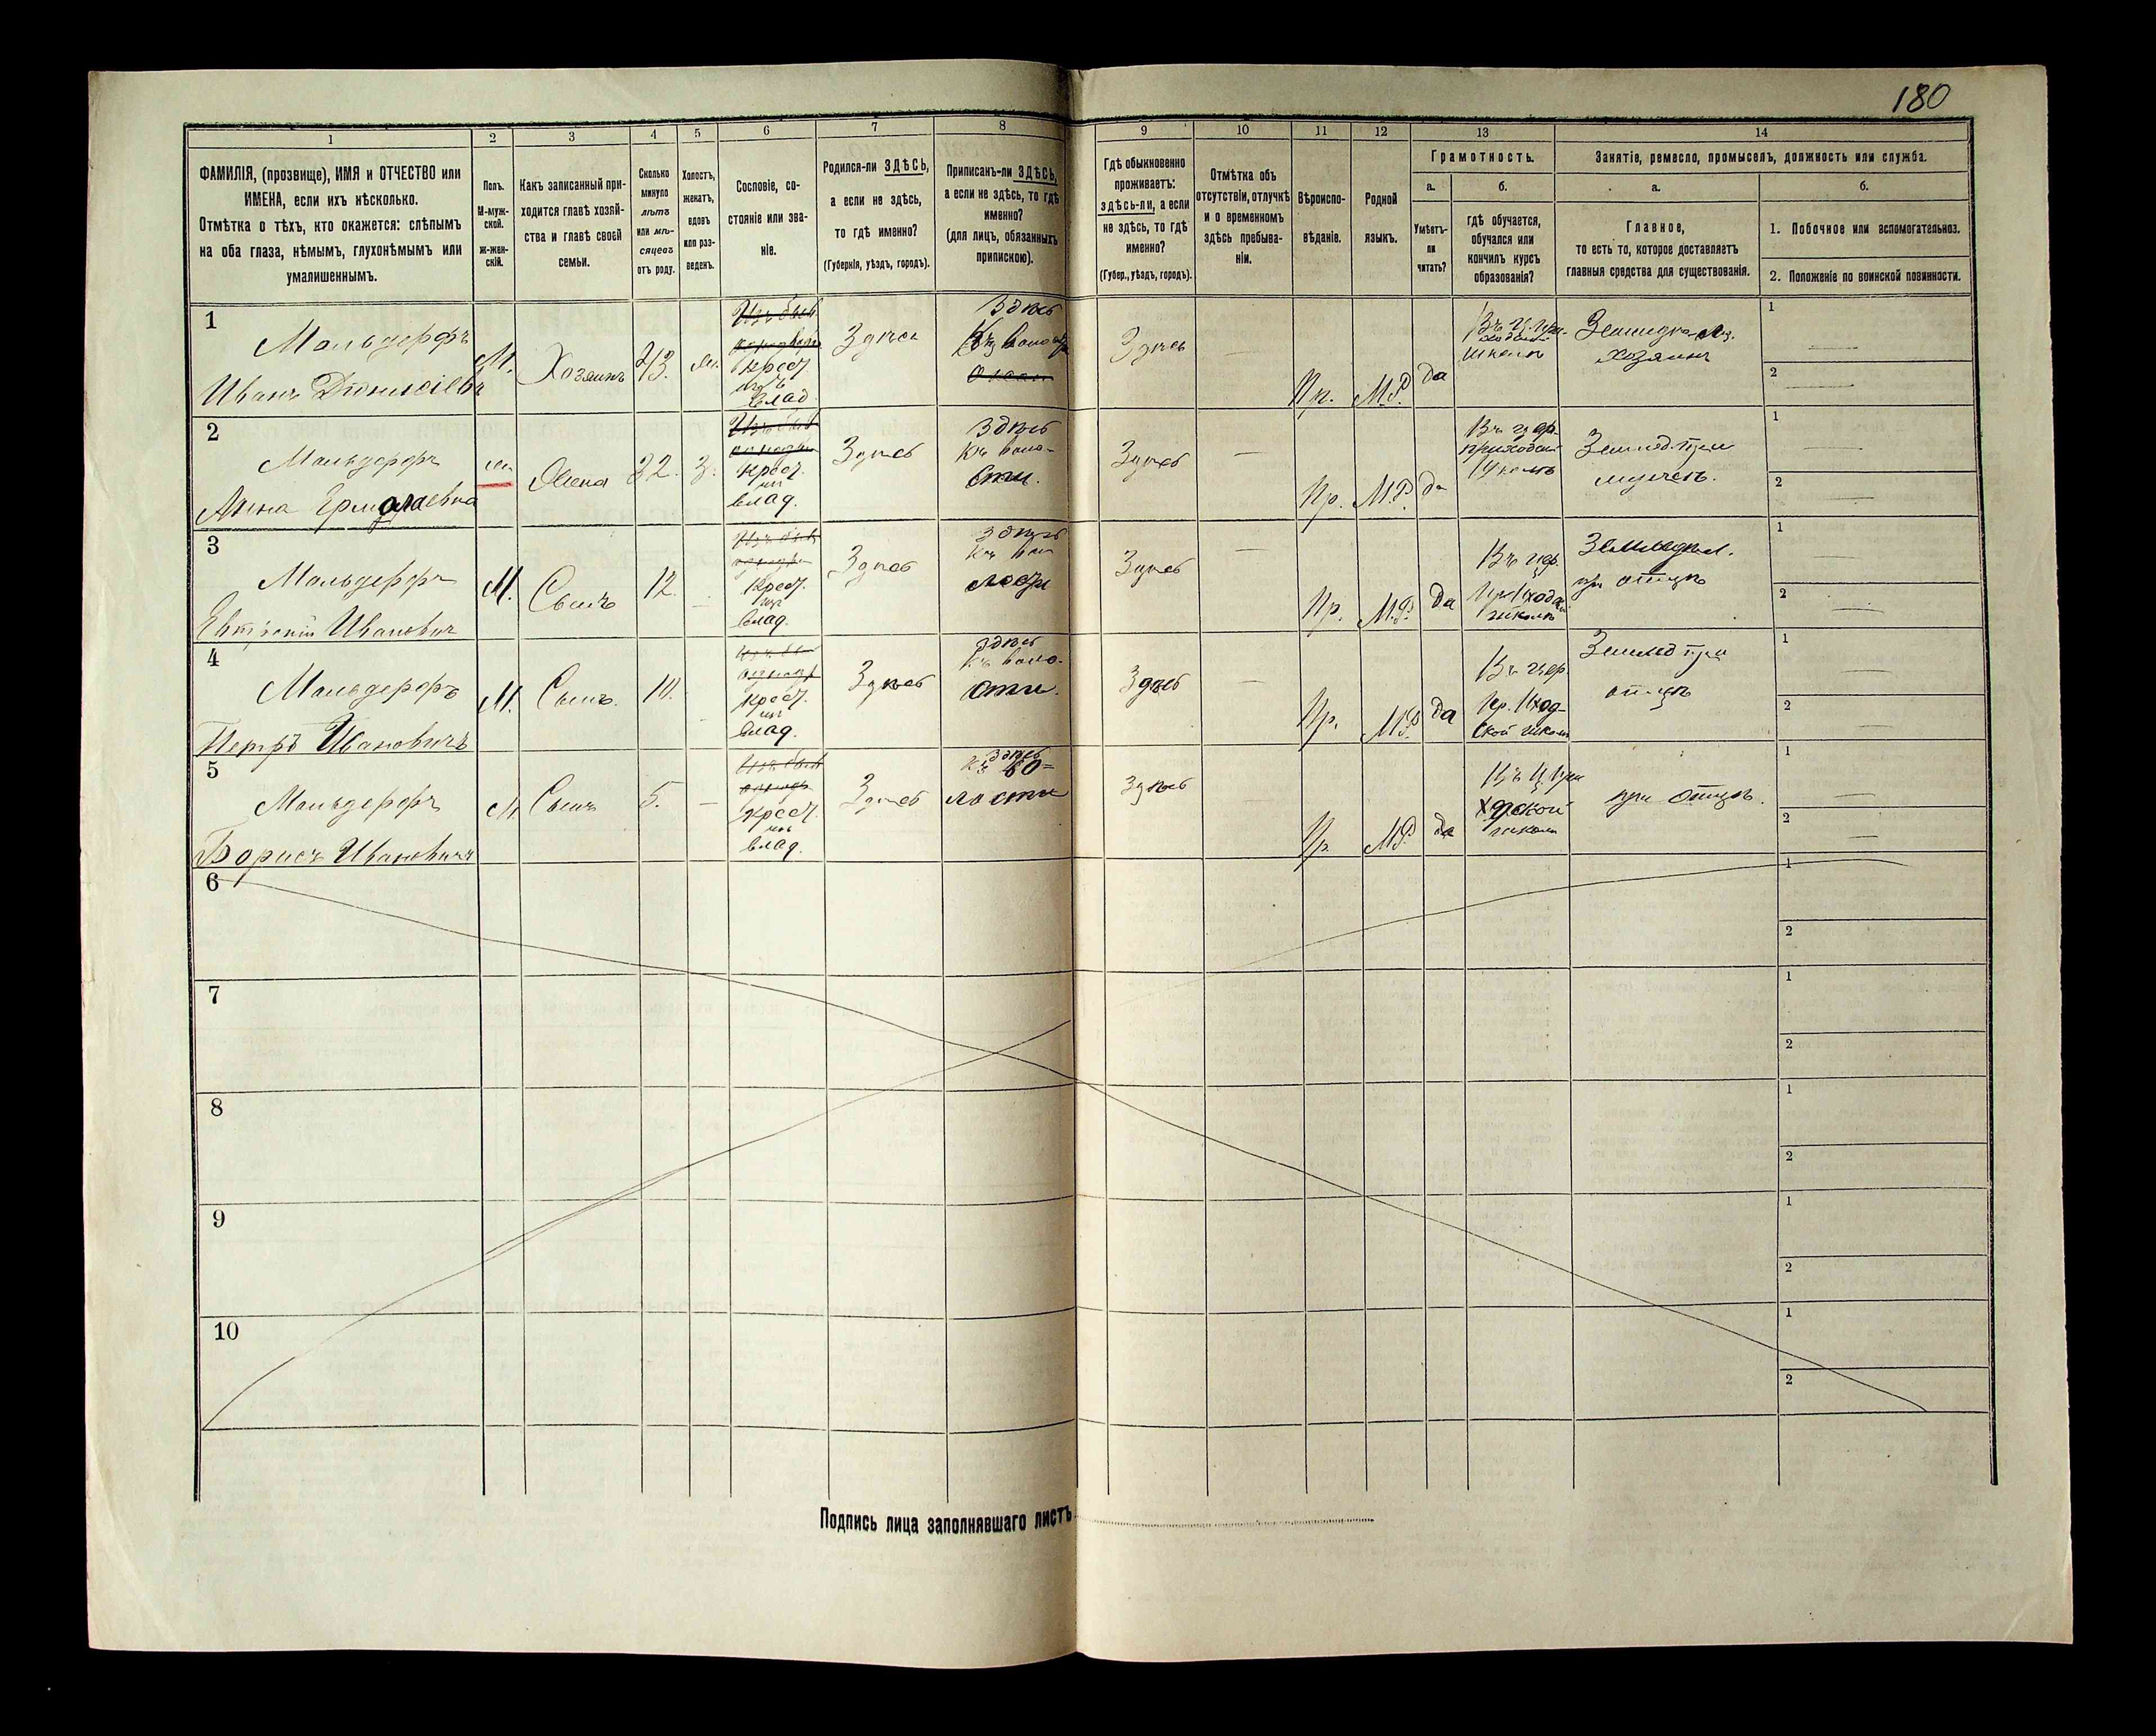 180
1
2
3
4
5
6
7
8
9
10
11
12
13
14
ФАМИЛІЯ, (прозвище), ИМЯ и ОТЧЕСТВО или
ИМЕНА, если ихъ нѣсколько.
Отмѣтка о тѣхъ, кто окажется: слѣпымъ
на оба глаза, нѣмымъ, глухонѣмымъ или
умалишеннымъ.
Полъ.
М-муж-
ской.
ж-жен-
скій.
Какъ записанный при-
ходится главѣ хозяй-
ства и главѣ своей
семьи.
Сколько
минуло
лѣтъ
или мѣ-
сяцевъ
отъ роду.
Холостъ,
женатъ,
вдовъ
или раз-
веденъ.
Сословіе, со-
стояніе или зва-
ніе.
Родился-ли ЗДѢСЬ,
а если не здѣсь,
то гдѣ именно?
(Губернія, уѣздъ, городъ).
Приписанъ-ли ЗДѢСЬ,
а если не здѣсь, то гдѣ
именно?
(для лицъ, обязанныхъ
припискою).
Гдѣ обыкновенно
проживаетъ:
здѣсь-ли, а если
не здѣсь, то гдѣ
именно?
(Губер., уѣздъ, городъ).
Отмѣтка объ
отсутствіи, отлучкѣ
и о временномъ
здѣсь пребыва-
ніи.
Вѣроиспо-
вѣданіе.
Родной
языкъ.
Грамотность.
а.
б.
Умѣетъ-
ли
читать?
гдѣ обучается,
обучался или
кончилъ курсъ
образованія?
Занятіе, ремесло, промыселъ, должность или служба.
а.
б.
Главное,
то есть то, которое доставляетъ
главныя средства для существованія.
1. Побочное или вспомогательное.
2. Положеніе по воинской повинности.
1
Мальдерфъ
Иванъ Діонисіевъ
М.
Хозяинъ
43.
Крест.
изъ
влад.
Здѣсь
Здѣсь
Здѣсь
Пр.
М.Р.
да
школѣ
хозяинъ
1
2
2
Мальдерфъ
Анна Ермолаевна
Жена
32.
З.
Крест.
из
влад.
Здѣсь
Здѣсь
къ воло-
сти.
Здѣсь
Пр.
М.Р
да
Въ цер.
приходск
школѣ
Землед. при
мужѣ.
1
2
3
Мальдерфъ
Иванович
М.
Сынъ
12.
Крест.
изъ
влад.
Здѣсь
Здѣсь
къ во
лости
Здѣсь
Пр.
М.Р.
да
Въ цер.
Приходск
школѣ
Земледѣл.
при отцѣ
1
2
4
Мальдерфъ
Петръ Ивановичъ
М.
Сынъ.
10.
Крест.
из
влад.
Здѣсь
Здѣсь
къ воло-
сти.
Здѣсь
Пр.
М.Р
да
Въ цер
Пр. Иход-
ской школ
Землед при
отцѣ
1
2
5
Мальдерфъ
Борисъ Ивановичъ
М.
Сынъ
5.
—
Крест.
изъ
влад.
Здѣсь
Здѣсь
къ во=
лости
Здѣсь
Пр
М.Р.
да
школы
при отцѣ.
1
2
6
1
2
7
1
2
8
1
2
9
1
2
10
1
2
Подпись лица заполнявшаго листъ